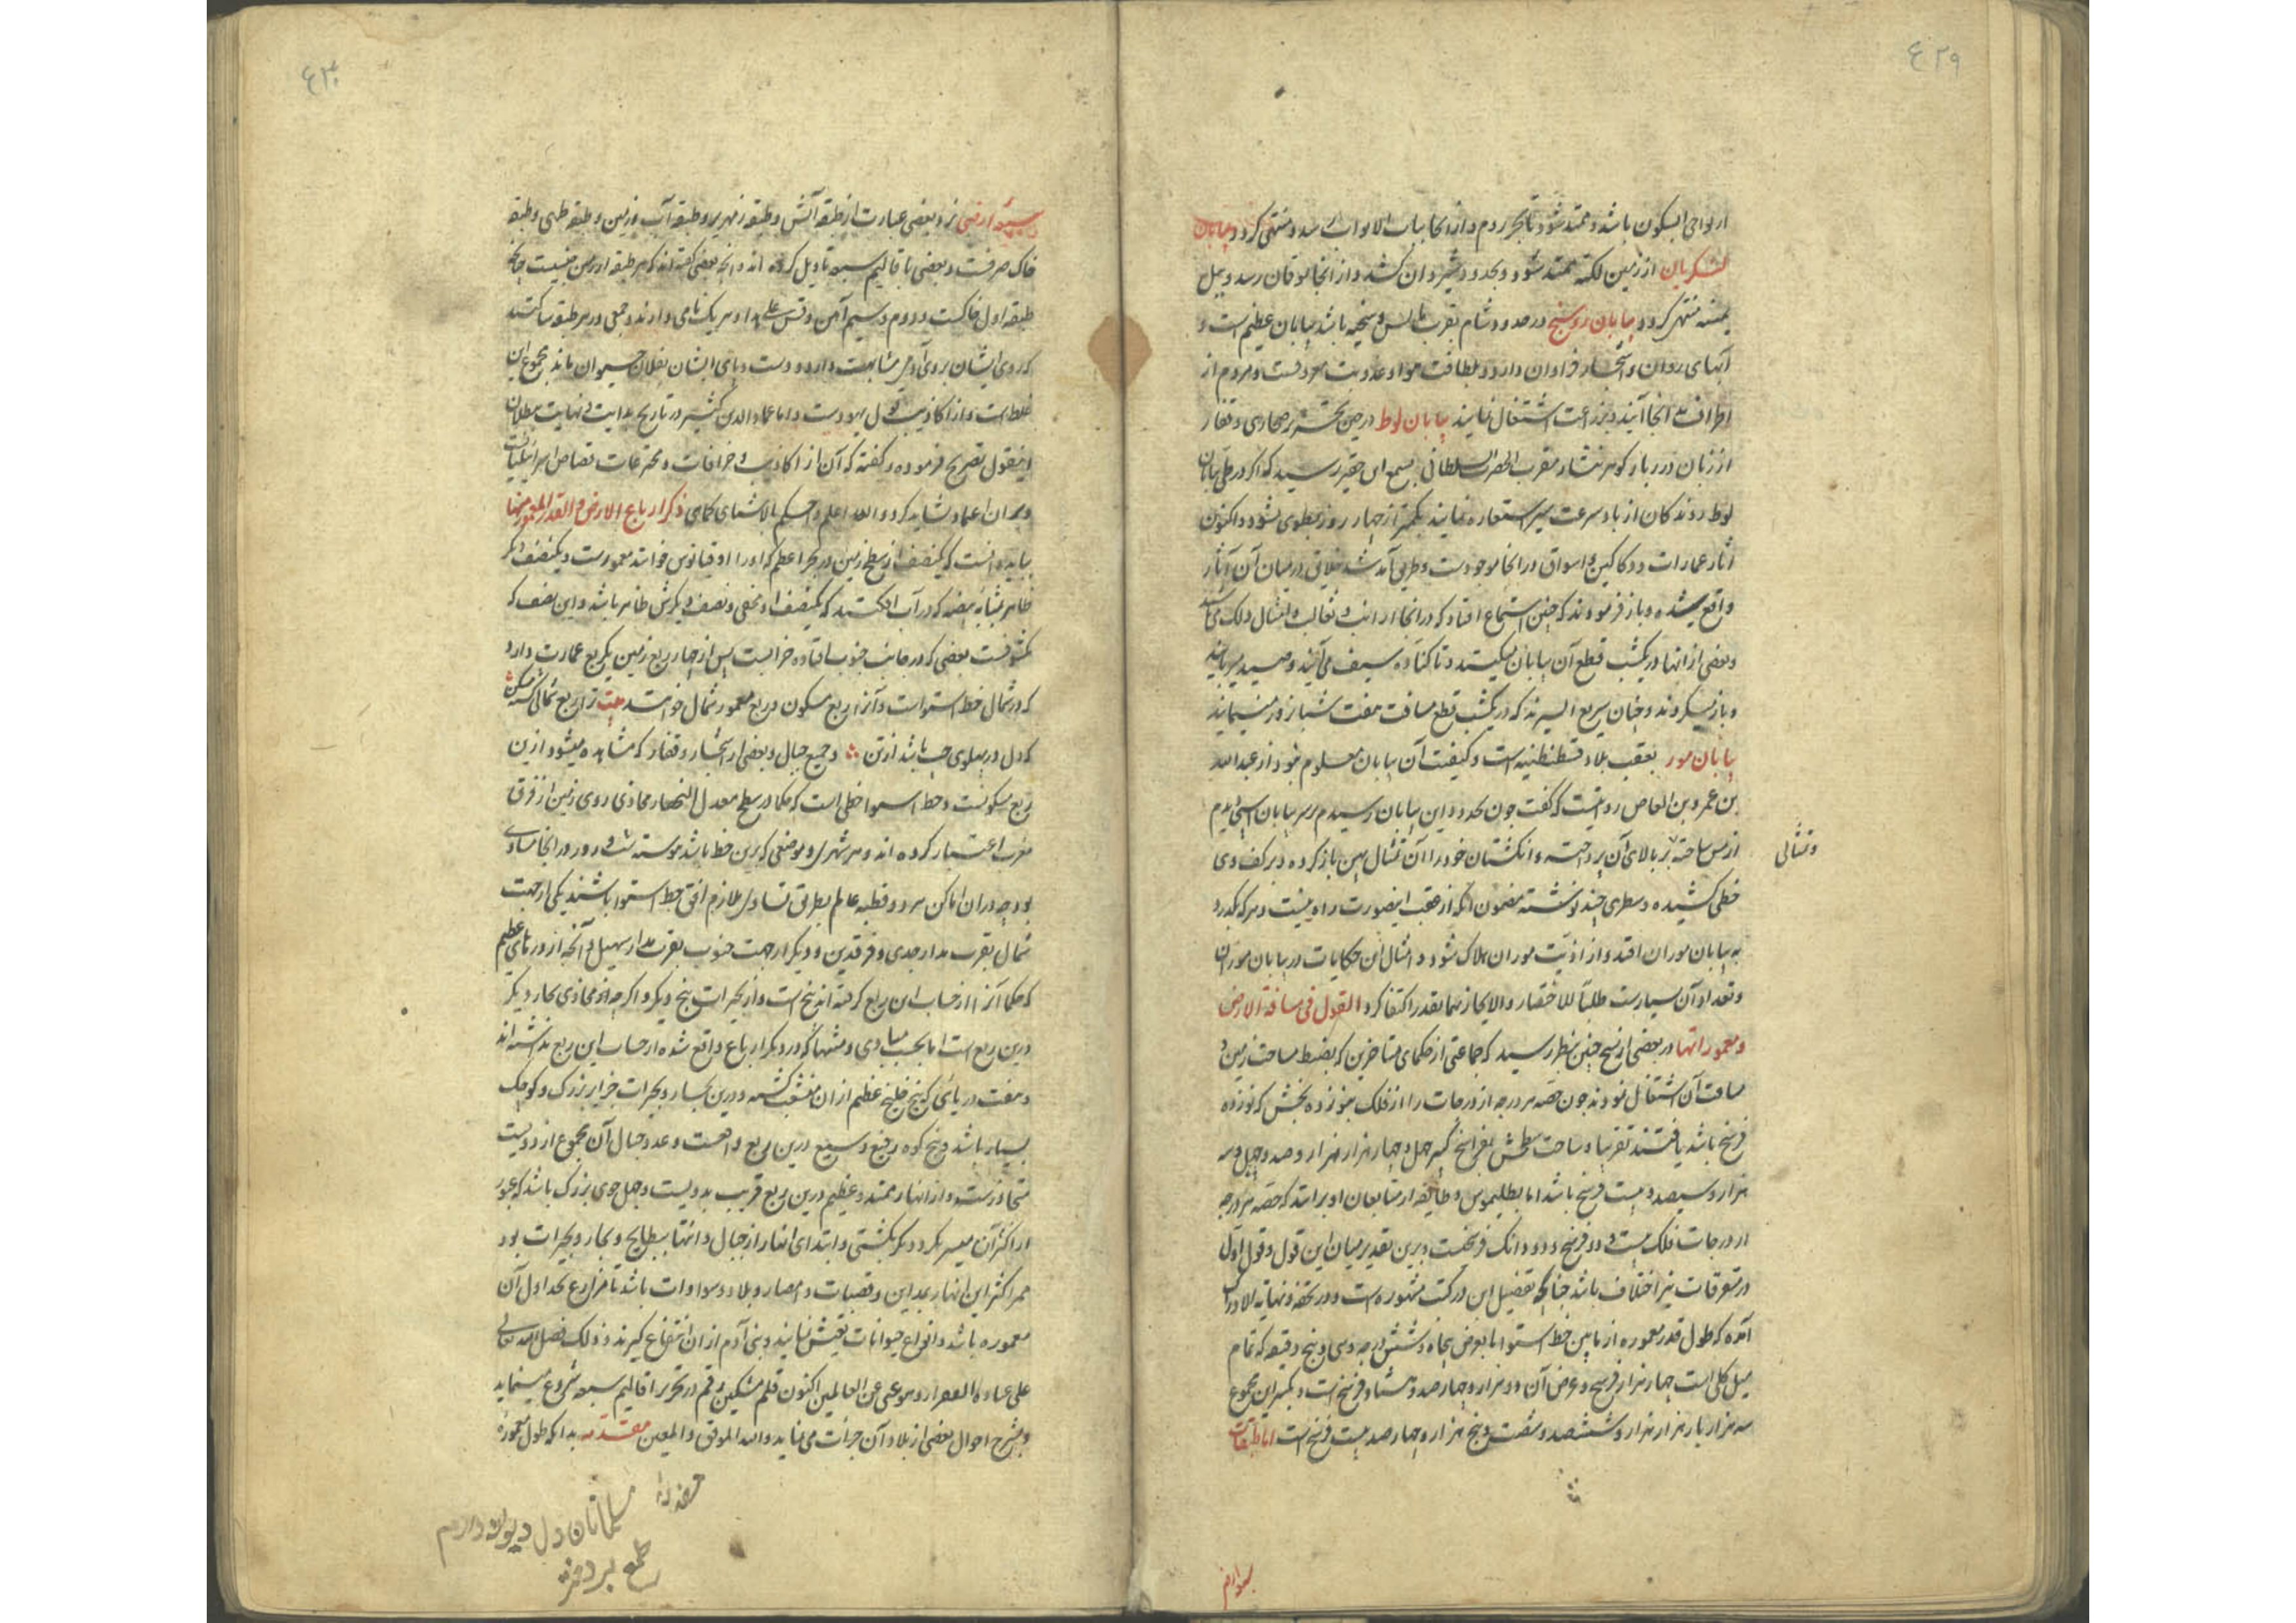 ٤٢٩
از نواحی آبسکون باشد و ممتد شود تا بحر روم و از آنجا بباب الابواب رسد و منتهی گردد بیابان
لشکریان از زمین لکنه ممتد شود و بحدود شیروان کشد و از آنجا بموقان رسد و بیل
منتهی گردد بیابان روسنج در حدود شام بقرب بالس و منیحه باشد بیابان عظیم است و
آبهای روان و اشجار فراوان دارد و بلطافت هوا و عذوبت معروفست و مردم از
اطراف بآنجا آیند و بزراعت اشتغال نمایند بیابان لوط درین مختصر صحاری و قفار
از زبان درربار کوهرنثار مقرب الحضرة السلطانی بسمع این حقیر رسید که اگر در طی بیابان
لوط روندکان از باد سرعت سیر استعاره نمایند بکمتر از چهار روز مطوی نشود و اکنون
آثار عمارات و دکاکین و اسواق در آنجا موجودست و طریق آمد شد خلایق در میان آن آثار
واقع شده و باز فرمودند که چنین استماع افتاد که در آنجا ارانب و ثعالب و امثال ذلک می باشد
و بعضی از آنها در یکشب قطع آن بیابان میکنند و تا کناوه سیف می آیند و صید می یابند
و باز میکردند و چنان سریع السیرند که در یکشب قطع مسافت هفت شبانروز مینمایند
بیابان مور بعقب بلاد قسطنطنیه است و کیفیت آن بیابان معلوم نبود از عبدالله
بن عمرو بن العاص روایتست که گفت چون بحدود این بیابان رسیدم بر سر بیابان اسبی دیدم
از مس ساخته بر بالای آن پرداخته و انکشتان خود را آن تمثال پهن باز کرده و بر کف وی
و تمثالی
خطی کشیده و سطری چند نوشته مضمون آنکه از عقب اینصورت راه نیست و هر که بگذرد
به بیابان موران افتد و از اذیت موران هلاک شود و امثال این حکایات در بیابان موران
و تعداد آن بسیارست طلبا للاختصار و الایجاز بهمانقدر اکتفا کرد القول فی مسافة الارض
و معموراتها در بعضی از نسخ چنین بنظر رسید که جماعتی از حکمای متاخرین که بضبط مساحت زمین و
مسافت آن اشتغال نمودند چون حصه هر درجه از درجات را از فلک بنوزده بخش که نوزده
فرسخ باشد یافتند تقریبا و مساحت سطحش بفراسخ کسر چهل و چهار هزار هزار و صد و چهل و سه
هزار و سیصد و بیست فرسخ باشد اما بطلیموس و طایفه از متابعان او برانند که حصه هر درجه
از درجات فلک بیست و دو فرسخ و دو دانک فرسخست و برین تقدیر میان این قول و قول اول
در متفرقات نیز اختلاف باشد چنانچه تفصیل این در کتب مشهوره است و در تحفه و نهایة الادراک
آمده که طول قدر معموره از مابین خط استوا تا بعرض پنجاه و شش درجه و سی و پنج دقیقه که تمام
میل کلی است چهار هزار فرسخ و عرض آن دو هزار و چهارصد و هشتاد فرسخ است و تکسیر این مجموع
سه هزار بار هزار هزار و ششصد و شصت و پنج هزار و چهارصد بیست فرسخ است اما طبقات
٤٣٠
سبعه ارضی نزد بعضی عبارت از طبقه آتش و طبقه زمهریر و طبقه آب و زمین و طبقه طینی و طبقه
خاک صرفست و بعضی باقالیم سبعه تاویل کرده اند و آنچه بعضی گفته اند که هر طبقه از زمین جنسیست چنانچه
طبقه اول خاکست و دوم و سیم آهن و قس علی هذا و هر یک نامی دارند و جمعی در هر طبقه ساکنند
که روی ایشان بروی آدمی مشابهت دارد و دست و پای ایشان بفلان حیوان ماند مجموع این
غلط است و از اکاذیب قول یهودست و اما عماد الدین کثیر در تاریخ بدایت نهایت ببطلان
اینقول تصریح فرموده و گفته که آن از اکاذیب و خرافات و مخترعات قصاص اسرائیلیاتست
و بر آن اعتماد نشاید کرد و الله اعلم و احکم بالاشیاء کماهی ذکر ارباع الارض و القدر المعمور منها
بباید دانست که یکنصف از سطح زمین در بحر اعظم که او را اوقیانوس خوانند مغمورست و یکنصف دیگر
ظاهر بمثابه بیضه که در آب افکنند که یکنصف او مخفی و نصف دیگرش ظاهر باشد و این نصف که
مکشوفست بعضی که در جانب جنوب افتاده خرابست پس از چهار ربع زمین یک ربع عمارت دارد
که در شمال خط استواست و آنرا ربع مسکون و ربع معمور شمال خوانند بیت زان ربع شمالی که مسکن شد
که دل در پهلوی چپ باشد از تن و جمیع جبال و بعضی از اشجار و قفار که مشاهده میشود ازین
ربع مسکونست و خط استوا خطی است که حکما در سطح معدل النهار محاذی روی زمین از فرق
مغرب اعتبار کرده اند و هر شهری و موضعی که برین خط باشد پیوسته شب و روز در آنجا مساوی
بود و در آن اماکن هر دو قطب عالم بطریق تساوی ملازم افق خط استوا باشند یکی از جهت
شمال بقرب مدار جدی و فرقدین و دیگر از جهت جنوب بقرب مدار سهیل و آنچه از دریاهای عظیم
که حکما آنرا از حساب این ربع گرفته اند پنج است و از بحیرات پنج دیگر و اگرچه از محاذی بحار دیگر
درین ربع است اما بحسب مبادی و منتها که در دیگر ارباع واقع شده از حساب این ربع نداشته اند
و هفت دریائی که پنج خلیج عظیم از آن منشعب گشته و درین بحار و بحیرات جزایر بزرک و کوچک
بسیار باشد و پنج کوه رفیع وسیع درین ربع واقعست و عدد جبال آن مجموع از دویست
متجاوزست و از انهار ممتد و عظیم درین ربع قریب بدویست و چهل جوی بزرک باشد که عبور
از اکثر آن میسر نگردد مگر بکشتی و ابتدای انهار از جبال و انتها ببطایح و بحار و بحیرات بود
ممر اکثر این انهار بمداین و قصبات و امصار و بلاد و سوادات باشد تا مزروع بجداول آن
معموره باشد و انواع حیوانات تعیش نمایند و بنی آدم از آن انتفاع گیرند و ذلک فضل الله تعالی
علی عباده الفقراء و هو غنی عن العالمین اکنون قلم مشکین رقم در تحریر اقالیم سبعه شروع مینماید
و بشرح احوال بعضی از بلاد آن جرات می نماید و الله الموفق و المعین مقدمه بدانکه طول معموره
مسلمانان دل دیوانه دارم
طمع